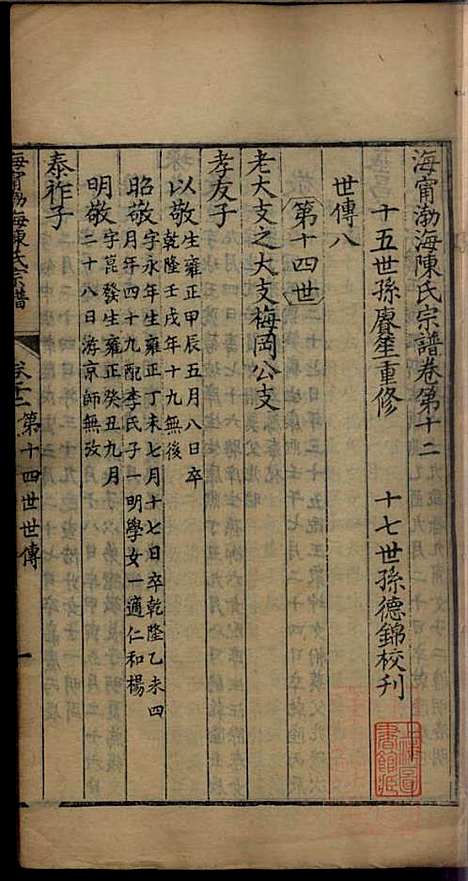 海甯渤海陳氏宗譜卷第十二
十五世孫賡笙重修
十七世孫德錦校刊
世傳八
第十四世
老大支之大支梅岡公支
孝友子
以敬生雍正甲辰五月八日卒
乾隆壬戌年十九無後
昭敬字永年生雍正丁未七月十七日卒乾隆乙未四
月年四十九配李氏子一明學女一適仁和楊
明敬字崑發生雍正癸丑九月
二十八日游京師無攷
泰祚子
海甯渤海陳氏宗譜
卷十二
第十四世世傳
一
上海圖書館藏